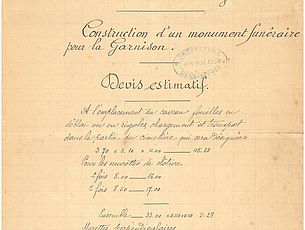 Construction d'un monument funéraire
pour la Garnison.
Devis estimatif.
A l'emplacement du caveau fouilles en
déblai ou en rigoles chargement et transport
dans la partie du cimetière qui sera désignée
3.70 x 3.10 x 4.00 = 45.88
Pour les murettes de clôture
2 fois 8.00 = 16.00
2 fois 8.50 = 17.00
Ensemble = 33.00 = 5.28
Murettes perpendiculaires